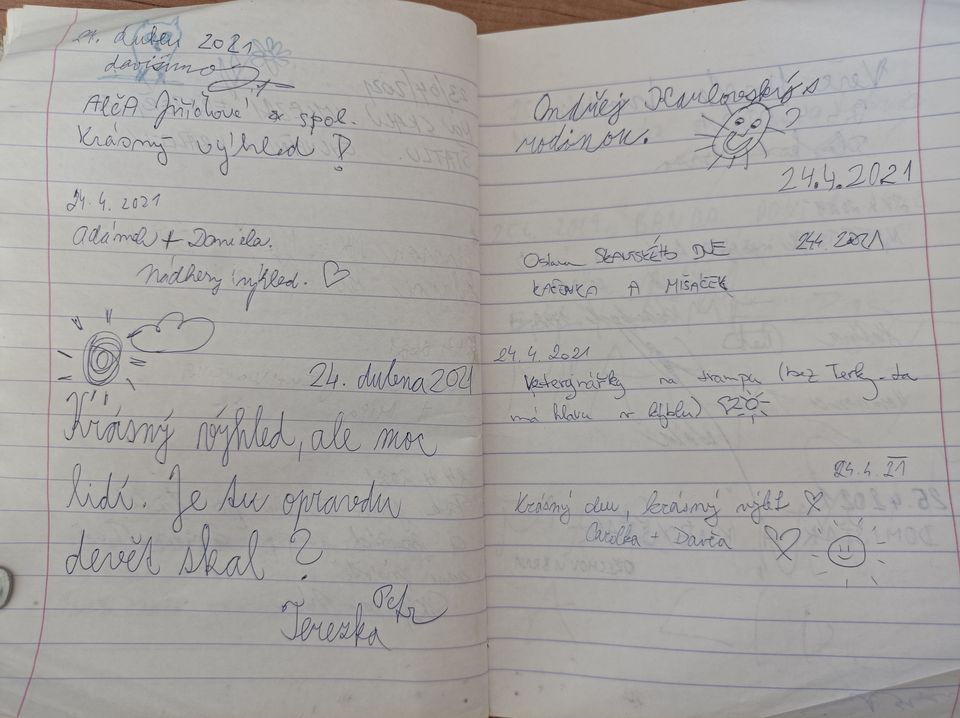 24. duben 2021
AlčA Jiříčkové a spol.
Krásný výhled !
24. 4. 2021
Adámek + Daniela.
Nádherný výhled.
24. dubna 2021
Krásný výhled, ale moc
lidí. Je tu opravdu
devět skal?
Petr
Terezka
Ondřej Karlovský s
rodinou.
24.4.2021
Oslava SKAUTSKÉHO DNE 24.4. 2021
KAČENKA A MIŠÁČEK
24. 4. 2021
na trampu (bez Terky - ta
má hlavu v
24. 4. 21
Krásný den, krásný výlet
+ Davča